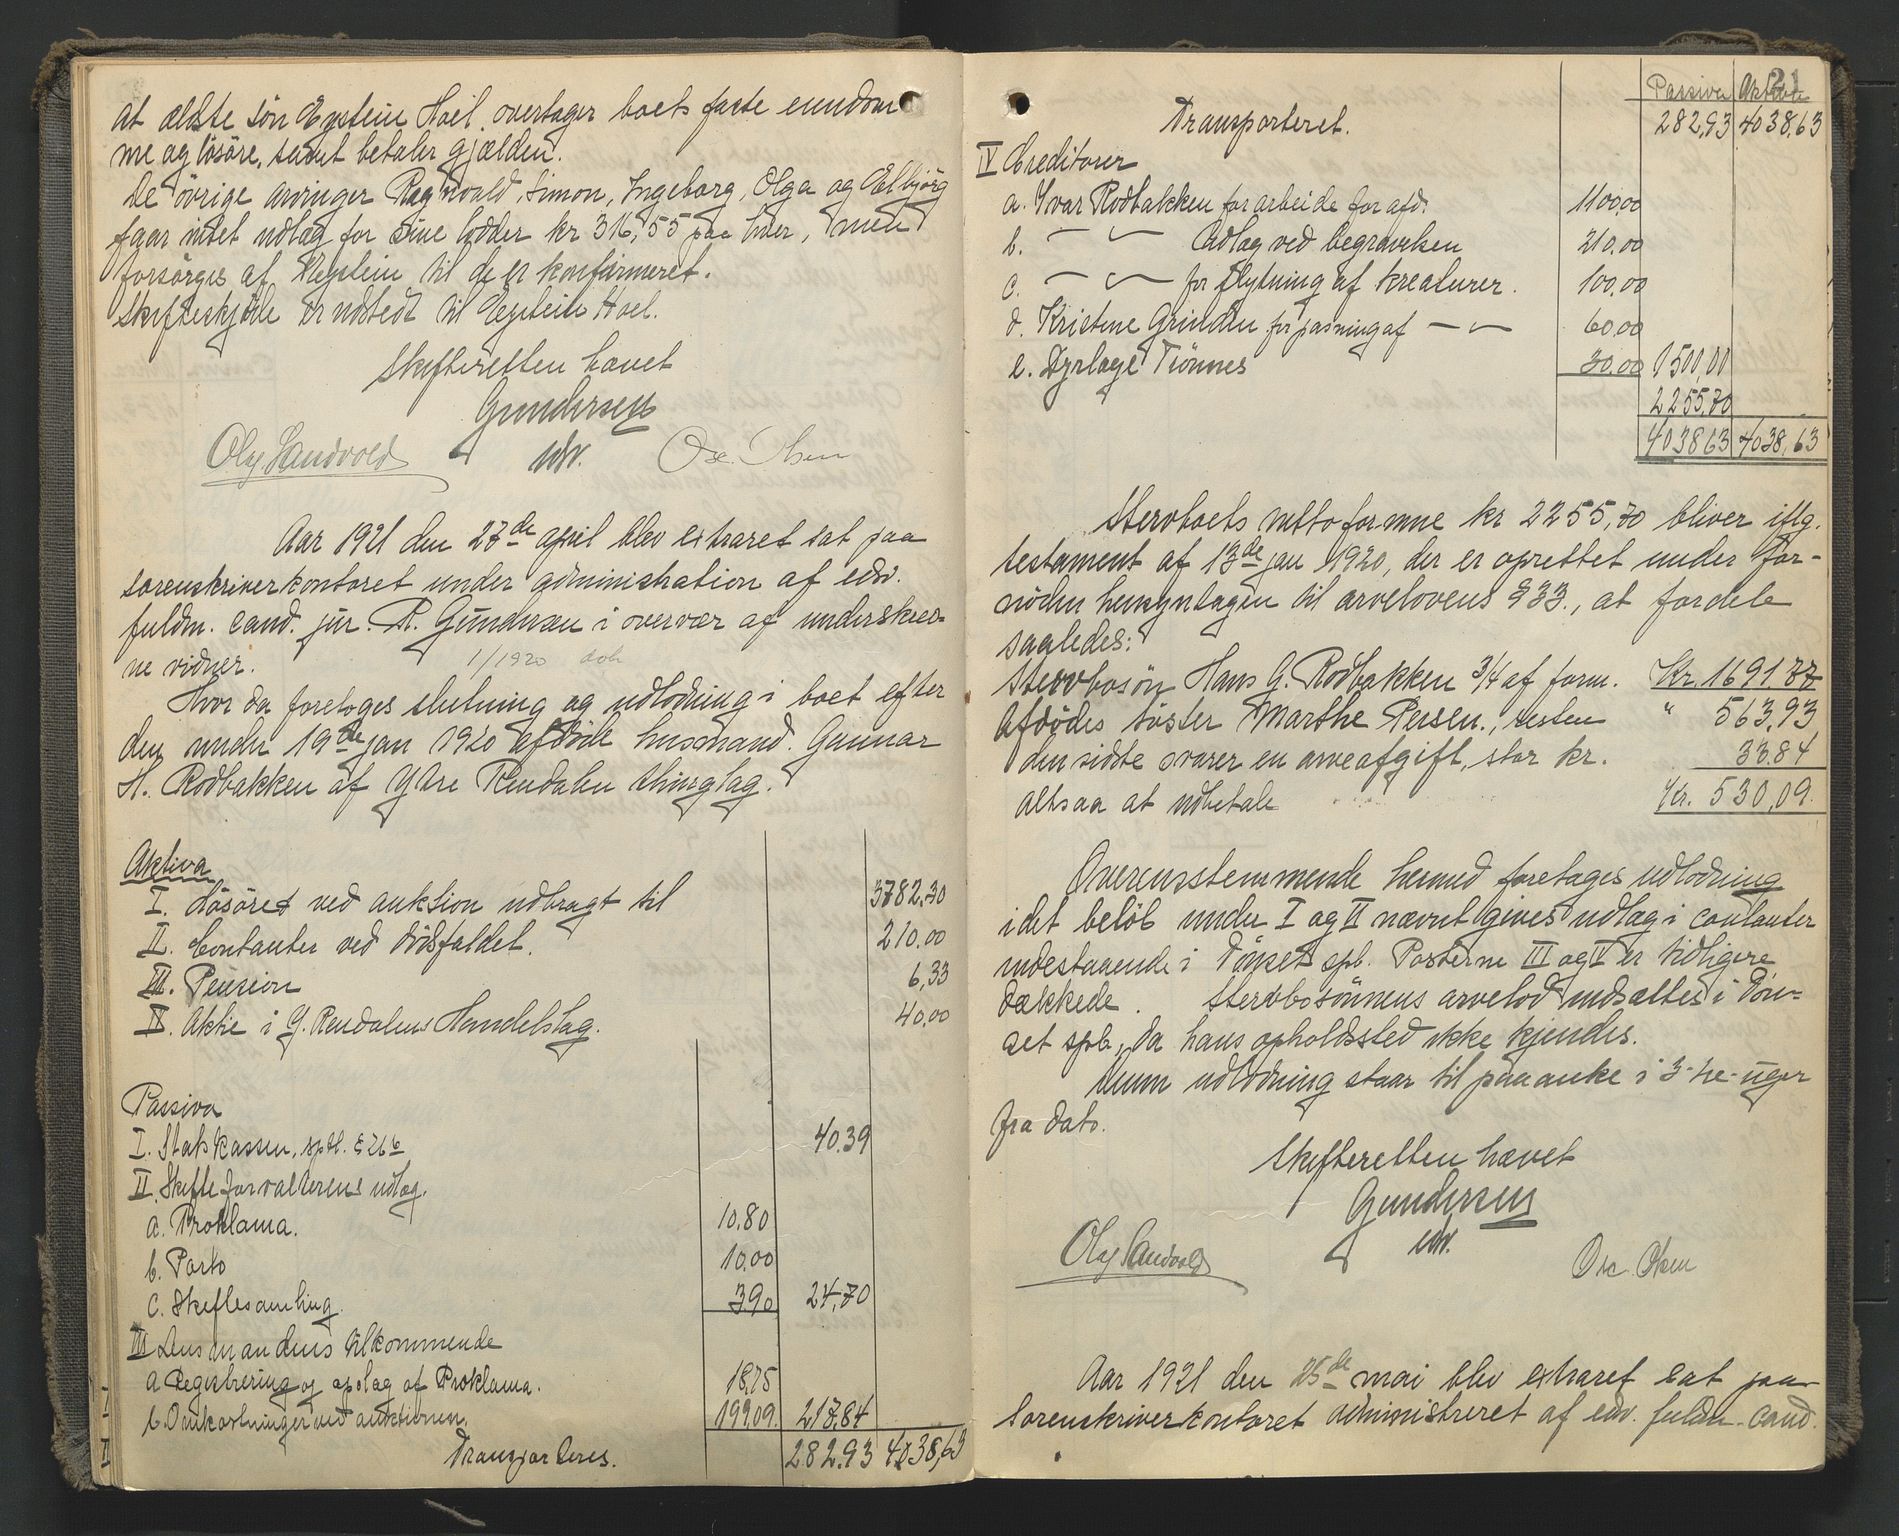 at ældste søn Eystein Hoel overtager boets faste eiendom-
me og løsøre, samt betaler gjælden.
De øvrige arvinger Ragnvald, Simon, Ingeborg, Olga og Elbjørg
faar intet udlæg for sine lodder kr 316,55 paa hver, men
forsørges af Eystein til de er konfirmeret.
Skifteskjøte er udstedt til Eystein Hoel.
Skifteretten hævet
Gundersen
edv.
Oly Sandvold
Osc. Olsen
Aar 1921 den 27de april blev extraret sat paa
sorenskriverkontoret under administration af edsv.
fuldm. cand. jur. R. Gundersen i overvær af underskrev-
ne vidner.
1/1920
Hvor da foretoges slutning og udlodning i boet efter
den under 19de jan 1920 afdøde husmand Gunnar
H. Rødbakken af Ytre Rendalen thinglag.
Aktiva
I. Løsøret ved auktion udbragt til 3782,30
II. Contanter ved dødsfaldet. 210.00
III. Pension 6,33
IV. Aktie i Y. Rendalens Handelslag. 40,00
Passiva
I. Statskassen, sptl. § 26 b 40.39
II. Skifteforvalterens udlæg.
a. Proklama. 10,80
b. Porto 10.00
c. Skiftesamling. 3.90 24,70
III Lensmandens tilkommende
a Registrering og opslag af Proklama. 18,75
b. Omkostninger ved auktionen. 199.09 217,84
Transporteres. 282.93 4038,63
21
Passiva Aktiva
Transporteret. 282,93 4038,63
IV Creditorer
a. Ivar Rødbakken for arbeide for afd. 1100,00
b. — " — Udlæg ved begravelsen 210.00
c. — " — for flytning af kreaturer. 100.00
d. Kristine Grinden for pasning af — " — 60.00
e. Dyrlæge Trønnes 30.00 1500,00
2255,70
4038 63 4038,63
Stervboets nettoformue kr 2255,70 bliver iflg.
testament af 13de jan 1920, der er oprettet under for-
nøden hensyntagen til arvelovens § 33., at fordele
saaledes:
Stervbosøn Hans G. Rødbakken 3/4 af form. Kr. 1691.77
Afdødes søster Marthe Persen., resten " 563,93
den sidste svarer en arveafgift, stor kr. 33.84
altsaa at udbetale Kr. 530,09.
Overensstemmende hermed foretages udlodning
i det beløb under I og II nævnt gives udlæg i contanter
indestaaende i Tönset spb. Posterne III og IV er tidligere
dækkede. Stervbosønnens arvelod indsættes i Tön-
set spb, da hans opholdssted ikke kjendes.
Denne udlodning staar til paaanke i 3-tre-uger
fra dato.
Skifteretten hævet
Gundersen
edv.
Oly Sandvold
Osc. Olsen
Aar 1921 den 25de mai blev extraret sat paa
Sorenskriverkontoret administreret af edv. fuldm. cand.